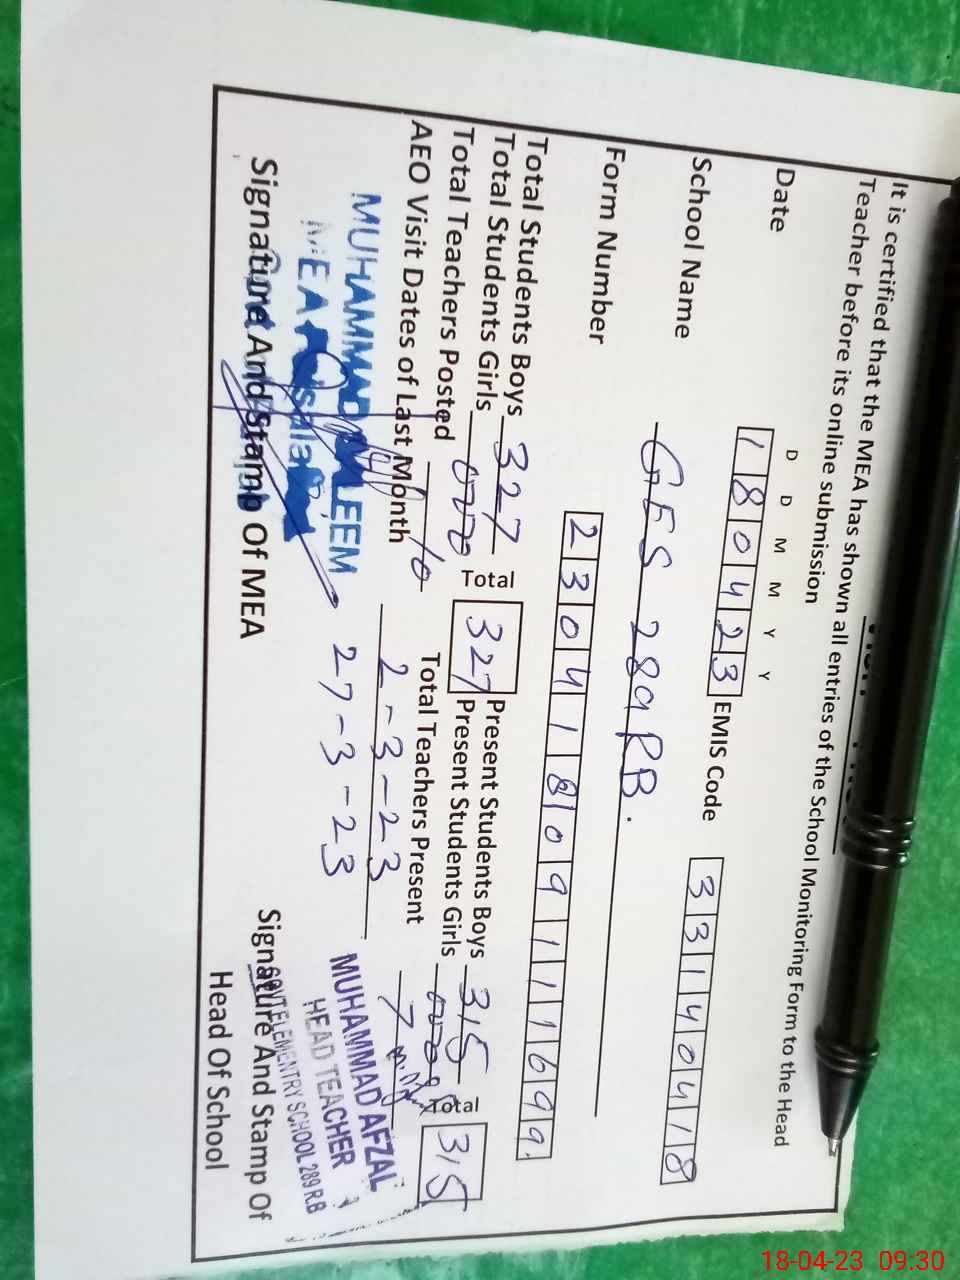 It is certified that the MEA has shown all entries of the School Monitoring Form to the Head
Teacher before its online submission
D D M M Y Y
Date 180423 EMIS Code 33140418
School Name GES 289RB.
Form Number 2304180911169 9.
Total Students Boys 327 Total 327 Present Students Boys 315 Total 315
Total Students Girls Present Students Girls
Total Teachers Posted 10 Total Teachers Present 7
AEO Visit Dates of Last Month 2-3-23
27-3-23
MUHAMMAD
MEA
Signature And Stamp Of MEA
MUHAMMAD AFZAL
HEAD TEACHER
GOVT ELEMENTRY SCHOOL 289 R.B
Signature And Stamp Of
Head Of School
18-04-23 09.30